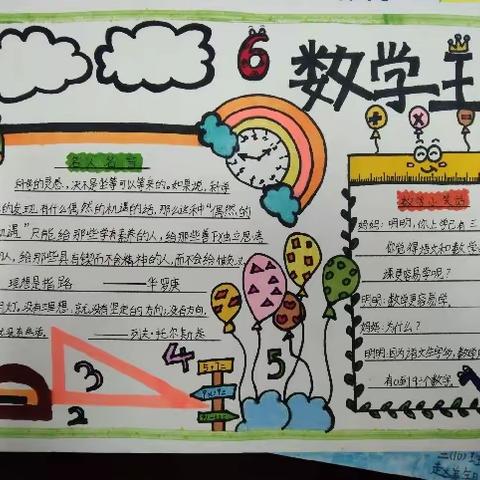 6
数学王
+
×
-
名人名言
科学的灵感，决不是坐等可以等来的。如果说，科学
的发现，有什么偶然的机遇的话，那么这种“偶然的
机遇”只能给那些学有素养的人，给那些善于独立思考
的人，给那些具有锲而不舍精神的人，而不会给懒汉
——华罗庚
理想是指路
明灯。没有理想，就没有坚定的方向；没有方向，
就没有生活。
——列夫·托尔斯泰
数学小笑话
妈妈：明明，你上学已有三
你觉得语文和数学
课更容易学呢？
明明：数学更容易学。
妈妈：为什么？
明明：因为语文生字多，数学
有0到9十个数字。
3
2
4
5
5+7=
三(10)班